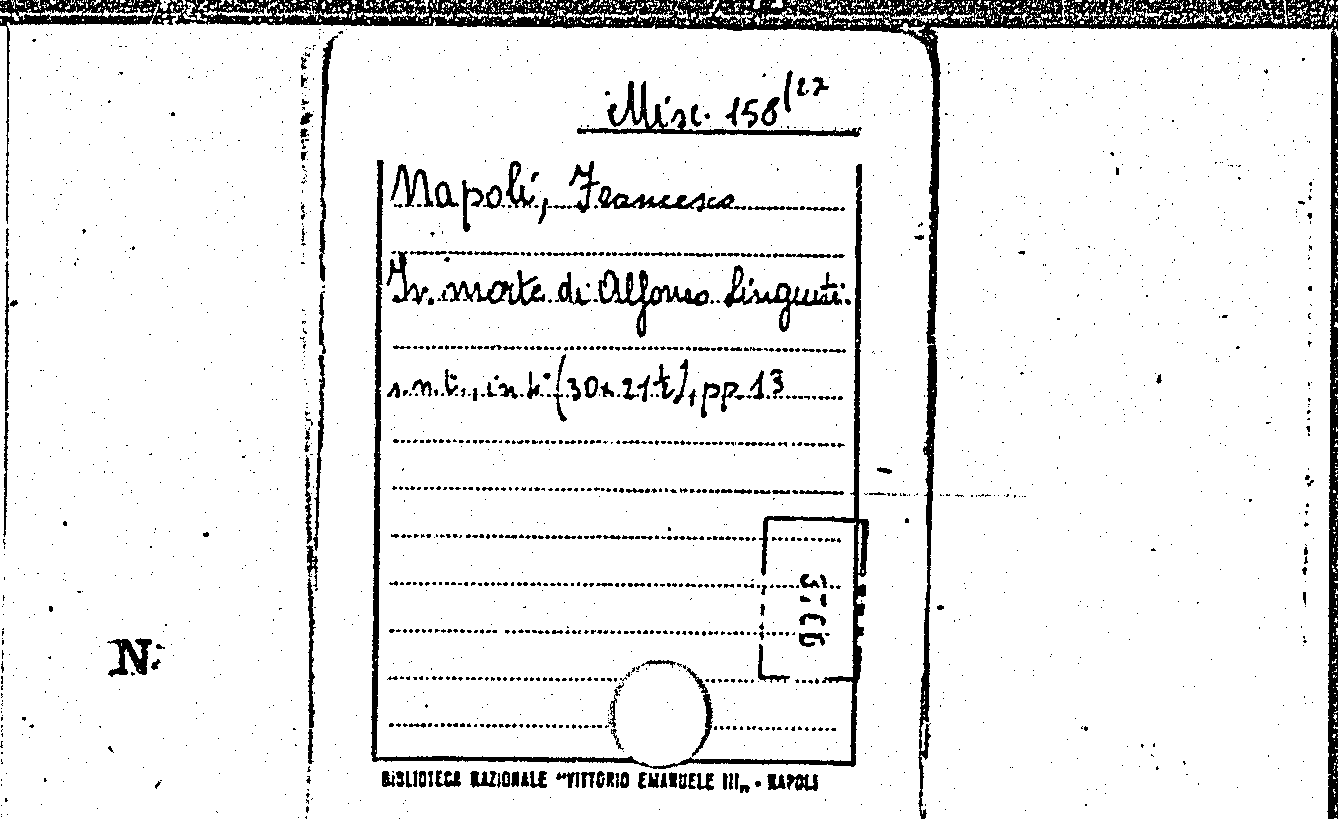 Misc. 158(27
Napoli, Francesco
In morte di Alfonso Linguiti.
s.n.t., in 4° (30x21½), pp. 13
N.
BIBLIOTECA NAZIONALE "VITTORIO EMANUELE III„ - NAPOLI